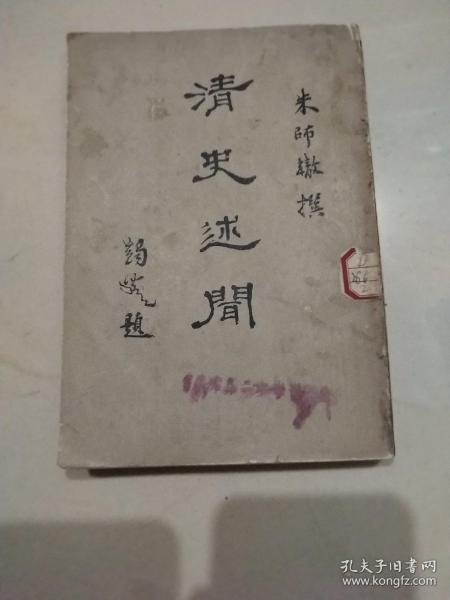 朱師轍撰
清史述聞
題
孔夫子旧书网
www.kongfz.com